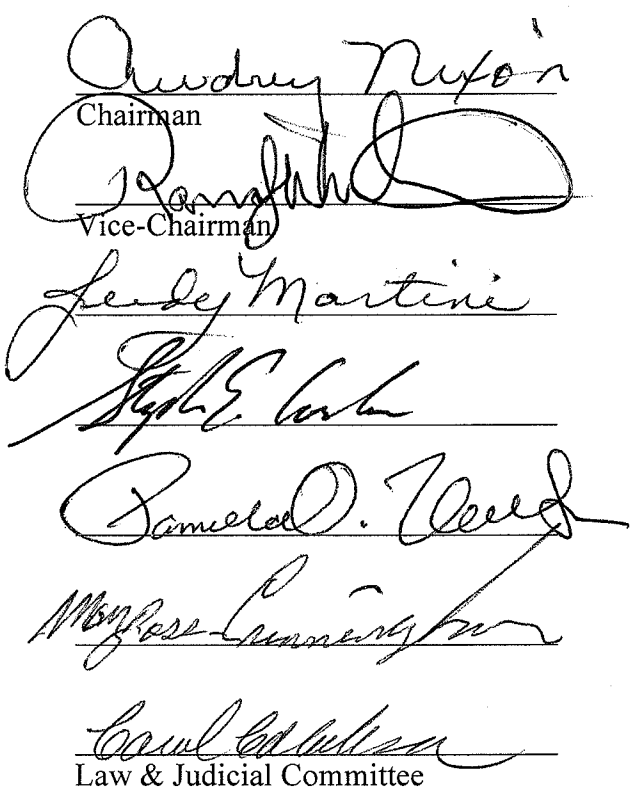 Audrey Nixon
Chairman
Vice-Chairman
Judy Martini
Stephen E.
Pamela O.
Mary Ross Cunningham
Carol
Law & Judicial Committee